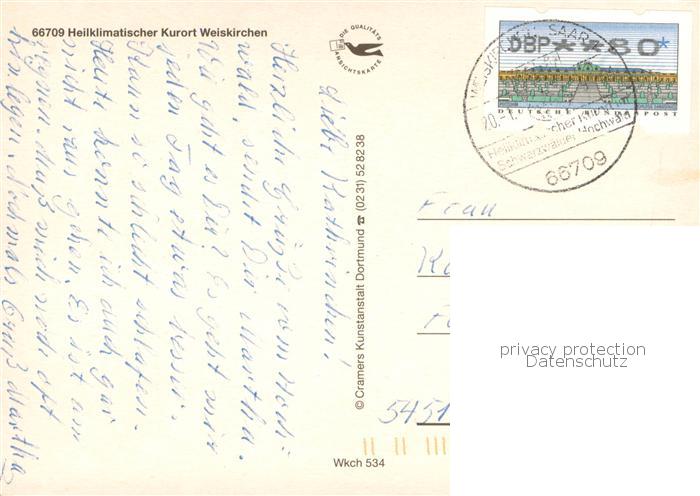 66709 Heilklimatischer Kurort Weiskirchen
DIE QUALITÄTS
ANSICHTSKARTE
DBP **80*
DEUTSCHE BUNDESPOST
SAAR
20.-1.
Heilklimatischer Kurort
Schwarzwälder Hochwald
66709
Liebe Kathrinchen!
Herzliche Grüße vom Hoch-
wald, sendet Dir Martha.
Wie geht es Dir? Es geht mir
jeden Tag etwas besser.
Kann so schlecht schlafen.
Heute konnte ich auch gar
nicht raus gehen. Es ist am
regnen. Muß mich noch oft
hinlegen. Nochmals Gruß Martha
© Cramers Kunstanstalt Dortmund ☎ (0231) 528238
Wkch 534
Frau
5451
privacy protection
Datenschutz